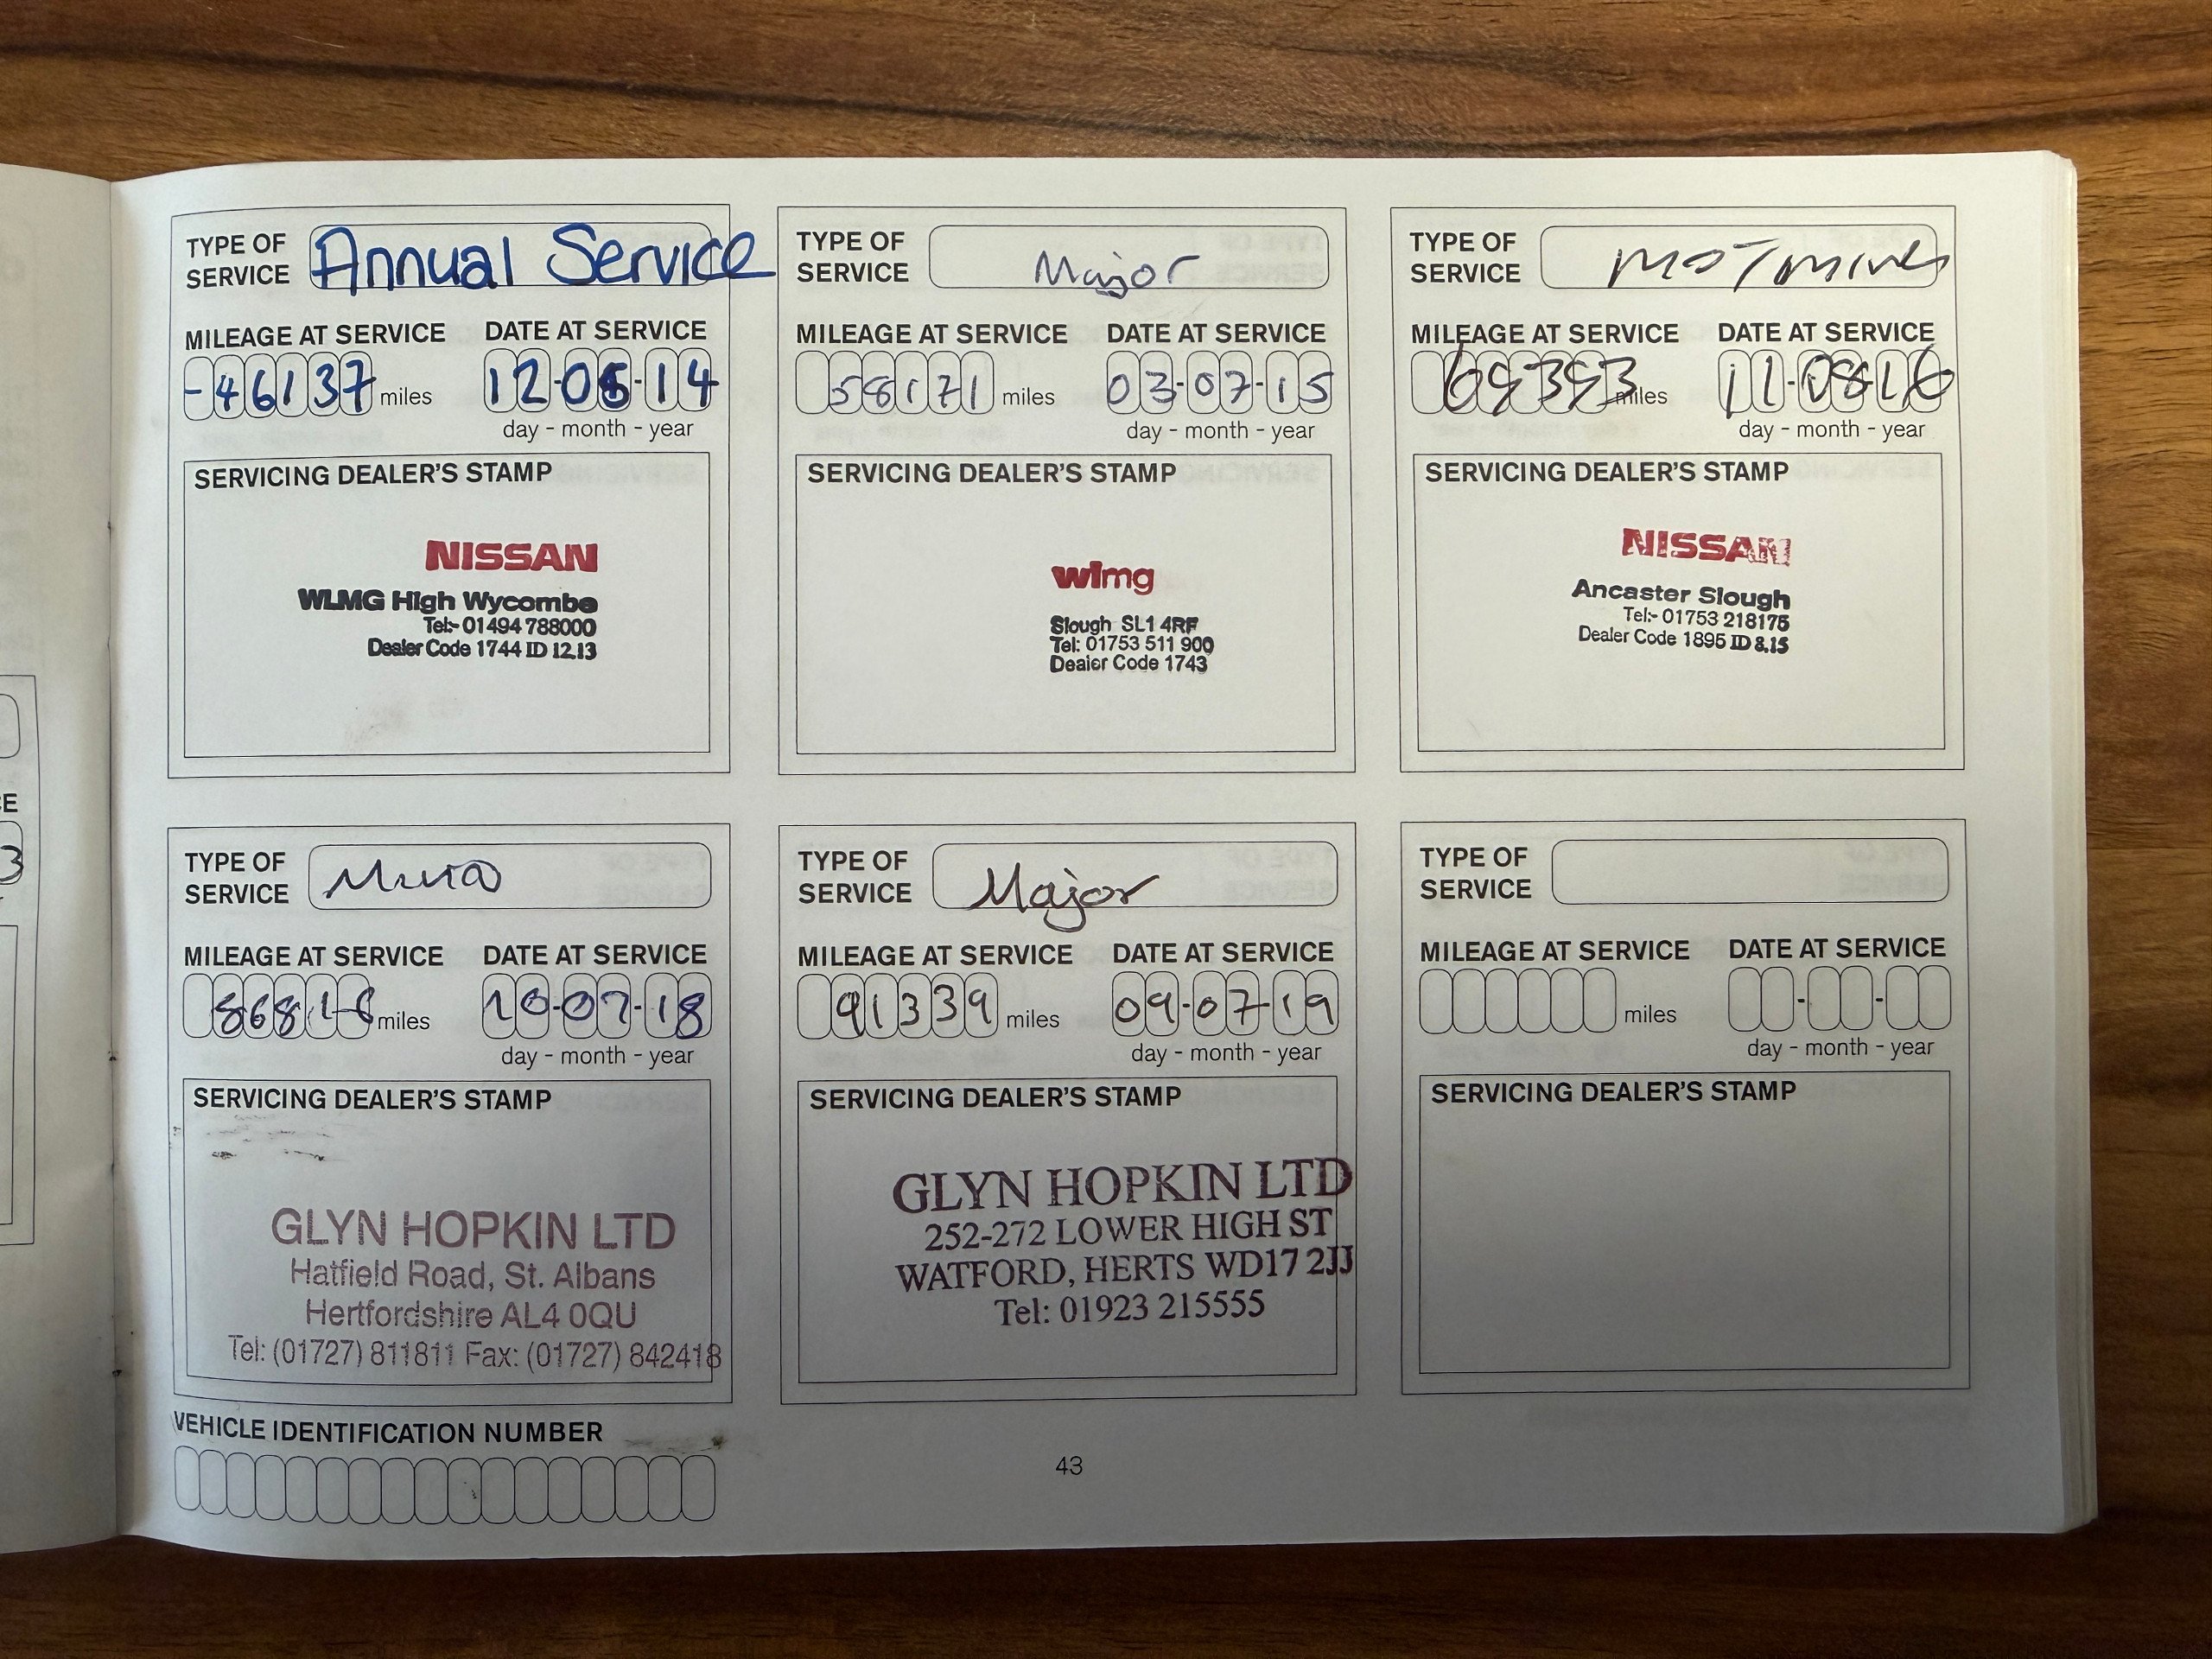 TYPE OF SERVICE Annual Service
MILEAGE AT SERVICE DATE AT SERVICE
-46137 miles 12-06-14
day - month - year
SERVICING DEALER'S STAMP
NISSAN
WLMG High Wycombe
Tel:- 01494 788000
Dealer Code 1744 ID 12.13
TYPE OF SERVICE Major
MILEAGE AT SERVICE DATE AT SERVICE
58171 miles 03-07-15
day - month - year
SERVICING DEALER'S STAMP
wlmg
Slough SL1 4RF
Tel: 01753 511 900
Dealer Code 1743
TYPE OF SERVICE MOT
MILEAGE AT SERVICE DATE AT SERVICE
69393 miles 11-08-16
day - month - year
SERVICING DEALER'S STAMP
NISSAN
Ancaster Slough
Tel:- 01753 218175
Dealer Code 1895 ID 8.15
TYPE OF SERVICE
MILEAGE AT SERVICE DATE AT SERVICE
86816 miles 10-07-18
day - month - year
SERVICING DEALER'S STAMP
GLYN HOPKIN LTD
Hatfield Road, St. Albans
Hertfordshire AL4 0QU
Tel: (01727) 811811 Fax: (01727) 842418
TYPE OF SERVICE Major
MILEAGE AT SERVICE DATE AT SERVICE
91339 miles 09-07-19
day - month - year
SERVICING DEALER'S STAMP
GLYN HOPKIN LTD
252-272 LOWER HIGH ST
WATFORD, HERTS WD17 2JJ
Tel: 01923 215555
TYPE OF SERVICE
MILEAGE AT SERVICE DATE AT SERVICE
miles - -
day - month - year
SERVICING DEALER'S STAMP
VEHICLE IDENTIFICATION NUMBER
43